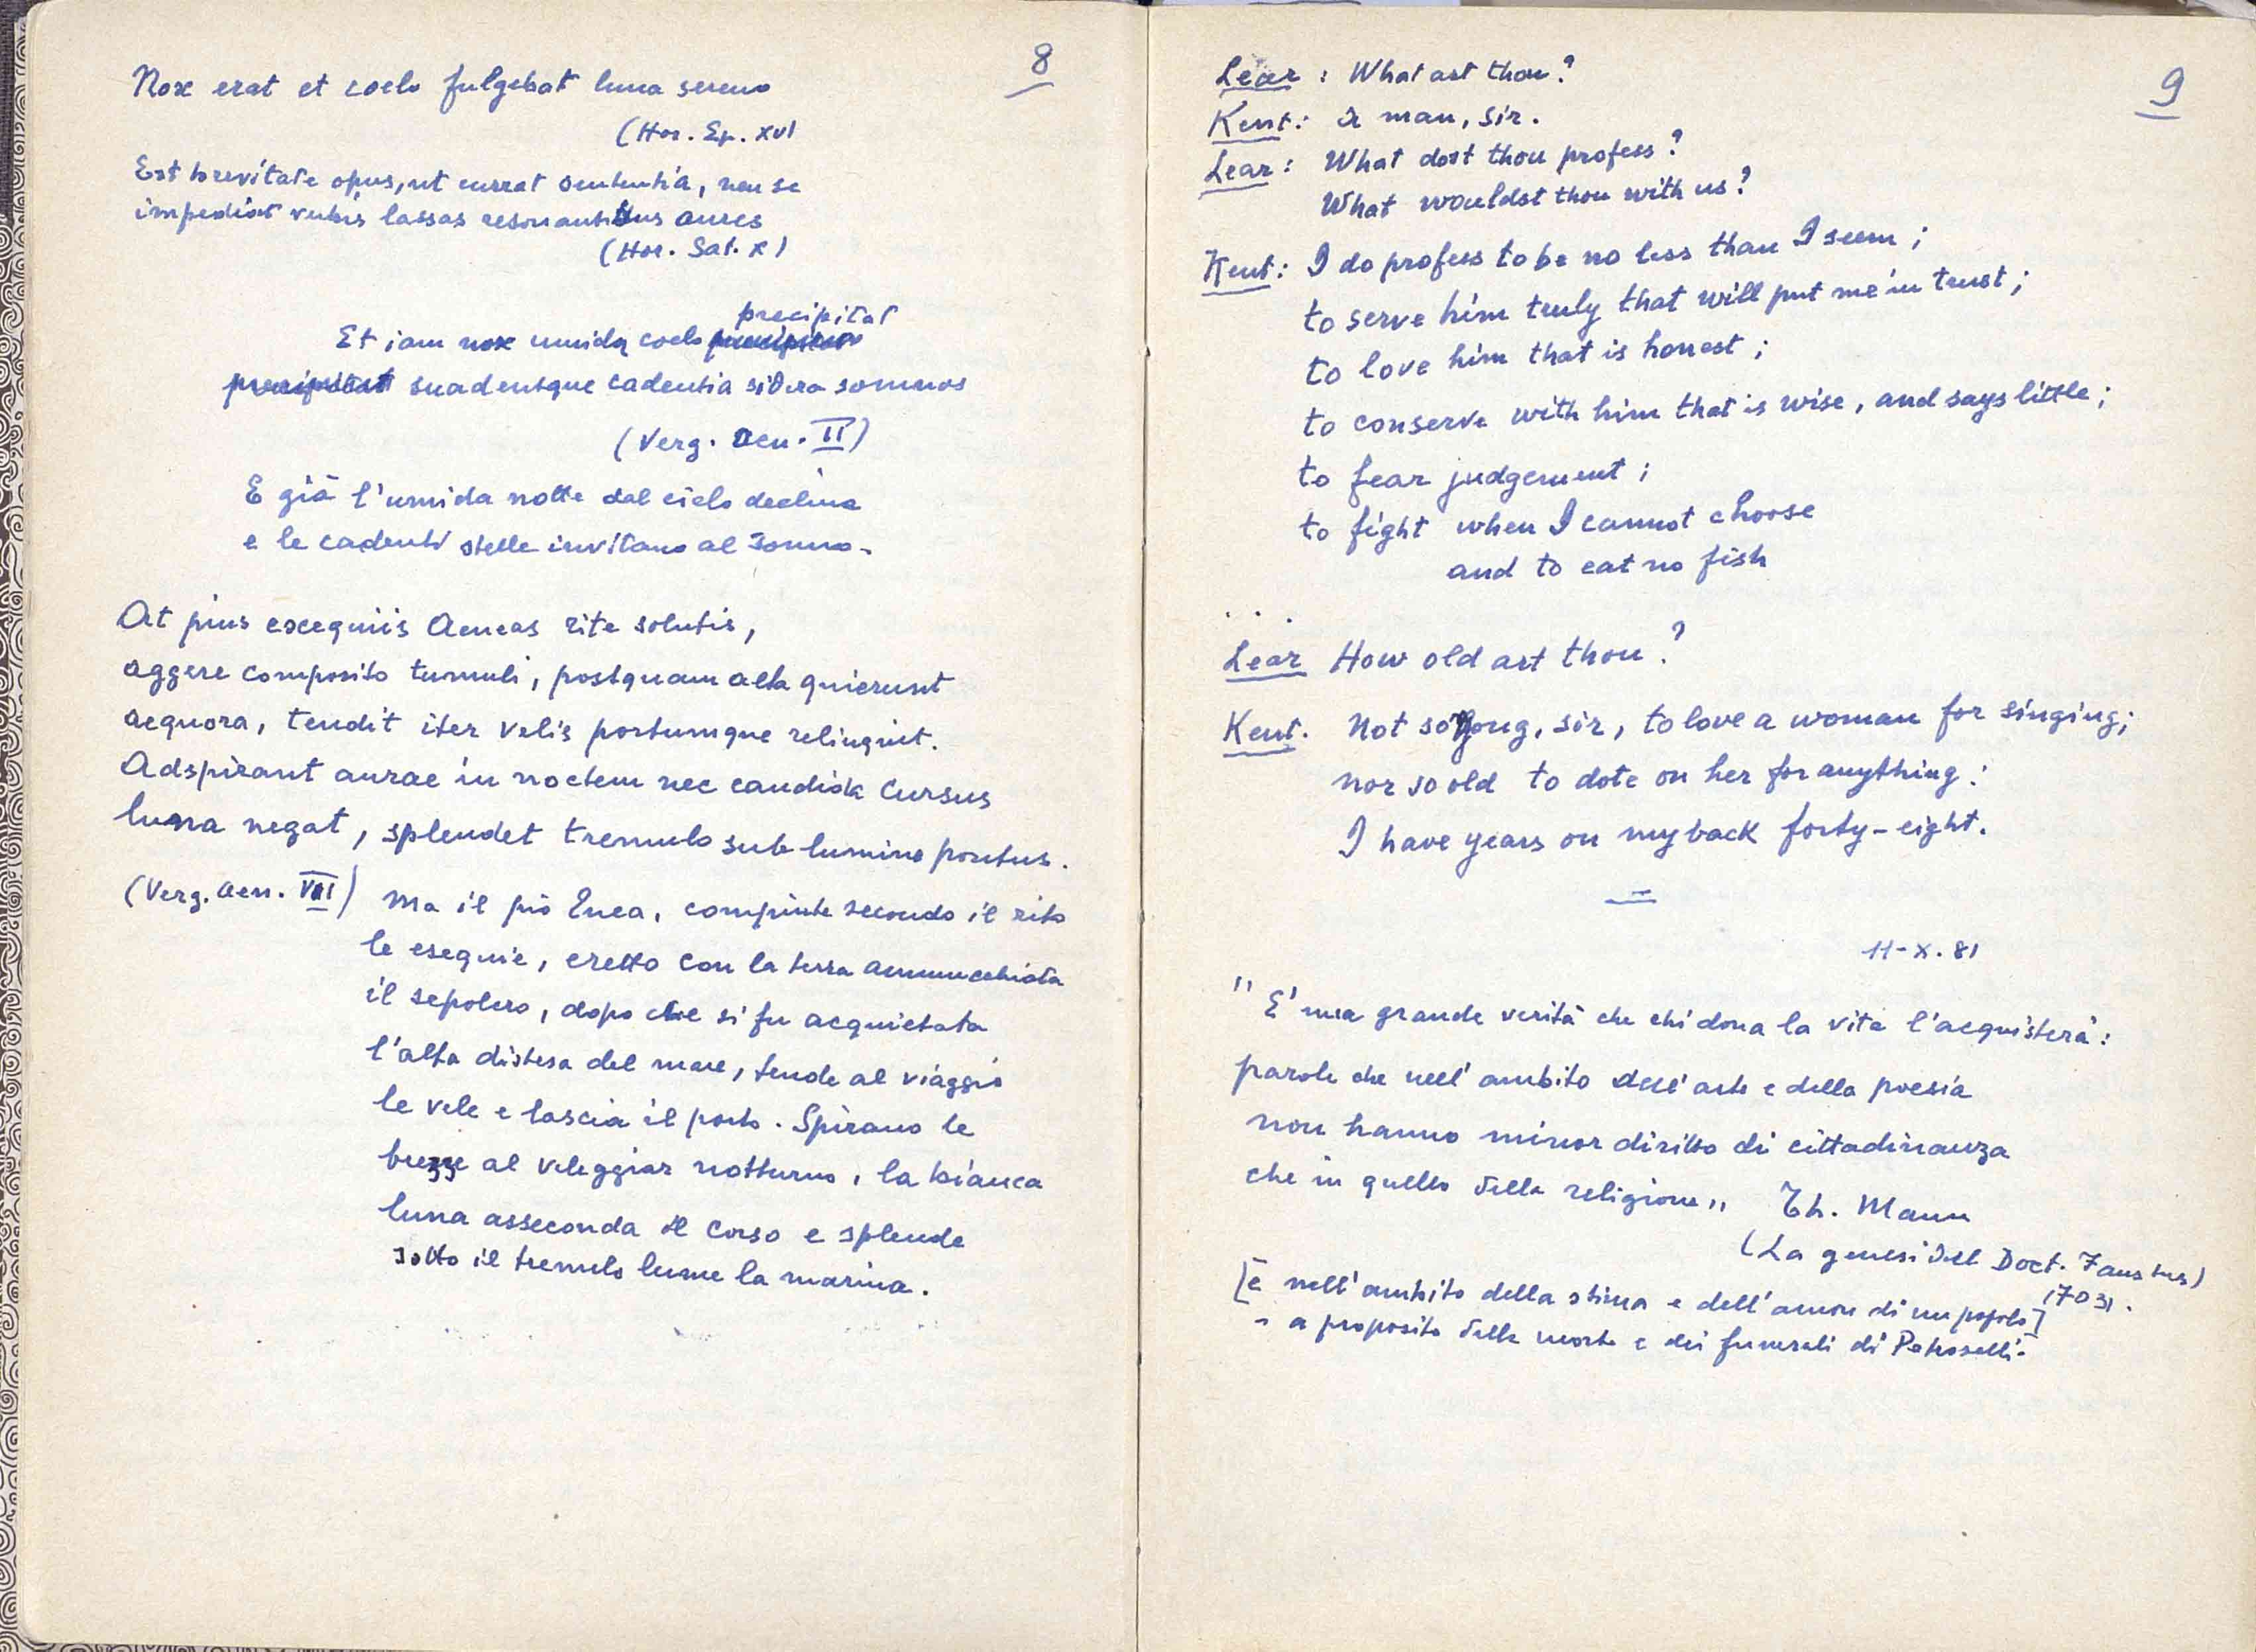 8
Nox erat et coelo fulgebat luna sereno
(Hor. Ep. XVI
Est brevitate opus, ut currat sententia, neu se
impediat verbis lassas resonantibus aures
(Hor. Sat. X)
precipitat
Et iam nox umida coelo
suadentque cadentia sidera somnos
(Verg. Aen. II)
E già l'umida notte dal cielo declina
e le cadenti stelle invitano al sonno -
At pius exequiis Aeneas rite solutis,
aggere composito tumuli, postquam alta quierunt
aequora, tendit iter velis portumque relinquit.
Adspirant aurae in noctem nec candida cursus
luna negat, splendet tremulo sub lumine pontus.
(Verg. Aen. VII) Ma il pio Enea, compiute secondo il rito
le esequie, eretto con la terra ammucchiata
il sepolcro, dopo che si fu acquietata
l'alta distesa del mare, tende al viaggio
le vele e lascia il porto. Spirano le
brezze al veleggiar notturno, la bianca
luna asseconda il corso e splende
sotto il tremulo lume la marina.
9
Lear: What art thou?
Kent: A man, sir.
Lear: What dost thou profess?
What wouldst thou with us?
Kent: I do profess to be no less than I seem;
to serve him truly that will put me in trust;
to love him that is honest;
to conserve with him that is wise, and says little;
to fear judgement;
to fight when I cannot choose
and to eat no fish
. . .
Lear How old art thou?
Kent. Not so yong, sir, to love a woman for singing;
nor so old to dote on her for anything:
I have years on my back forty-eight.
11-X.81
"E' una grande verità che chi dona la vita l'acquisterà:
parole che nell'ambito dell'arte e della poesia
non hanno minor diritto di cittadinanza
che in quello della religione" Th. Mann
(La genesi del Doct. Faustus)
(703).
[e nell'ambito della stima e dell'amore di un popolo]
- a proposito della morte e dei funerali di Petroselli -